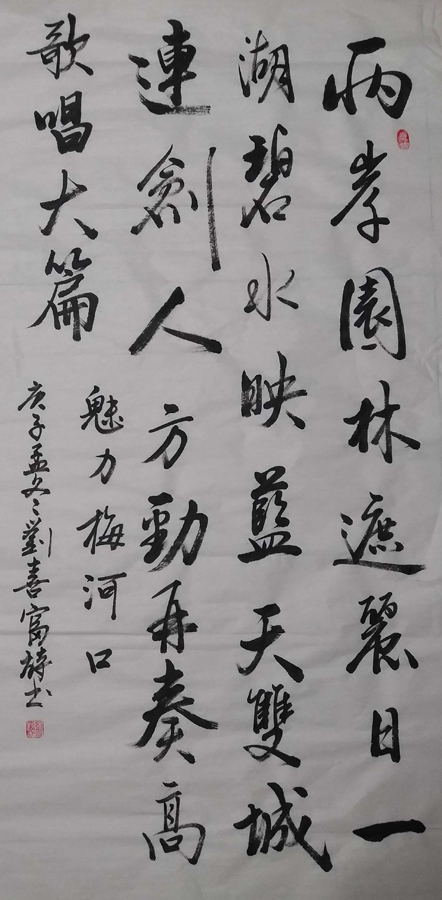 两岸園林遮麗日一
湖碧水映藍天雙城
連創人方勁再奏高
歌唱大篇
魅力梅河口
庚子孟冬劉喜富詩书